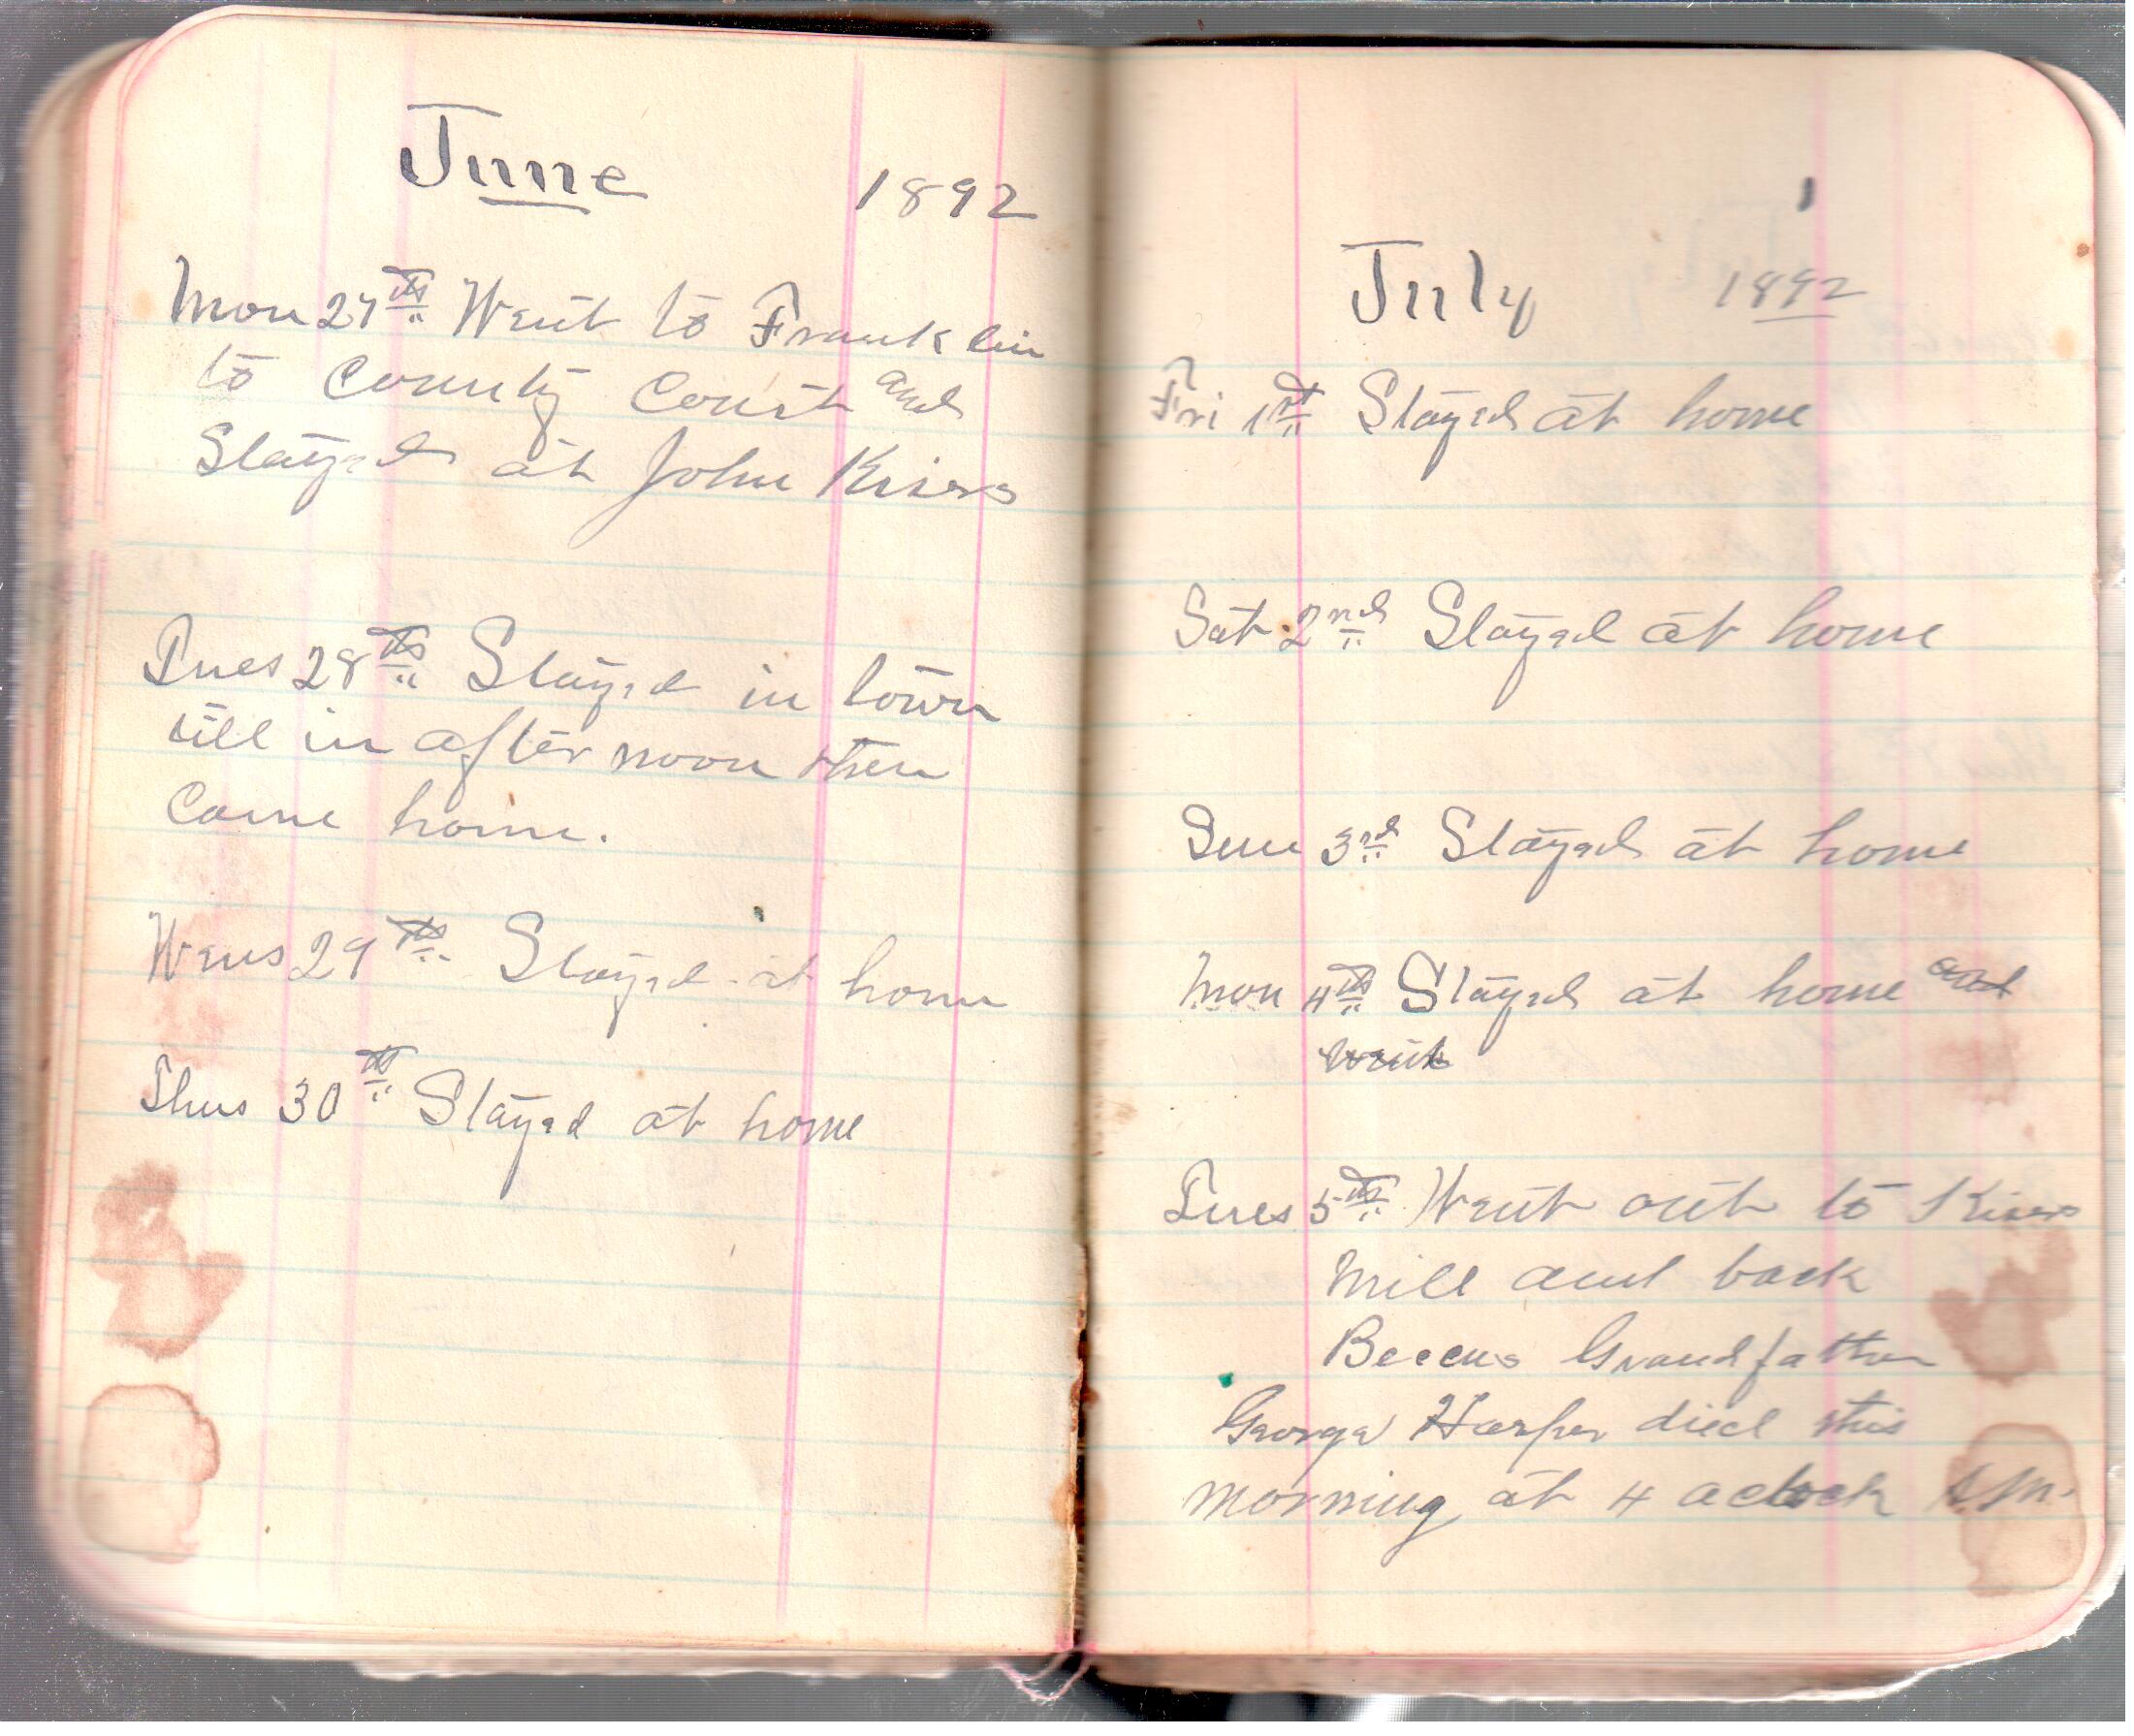 June 1892
Mon 27th Went to Franklin
to County Court and
Stayed at John Kisers
Tues 28th Stayed in town
till in after noon then
Came home.
Wens 29th Stayed at home
Thus 30th Stayed at home
July 1892
Fri 1st Stayed at home
Sat 2nd Stayed at home
Sun 3rd Stayed at home
Mon 4th Stayed at home and
went
Tues 5th Went out to Kisers
Mill and back
Grandfather
George Harper died this
morning at 4 aclock A.M.